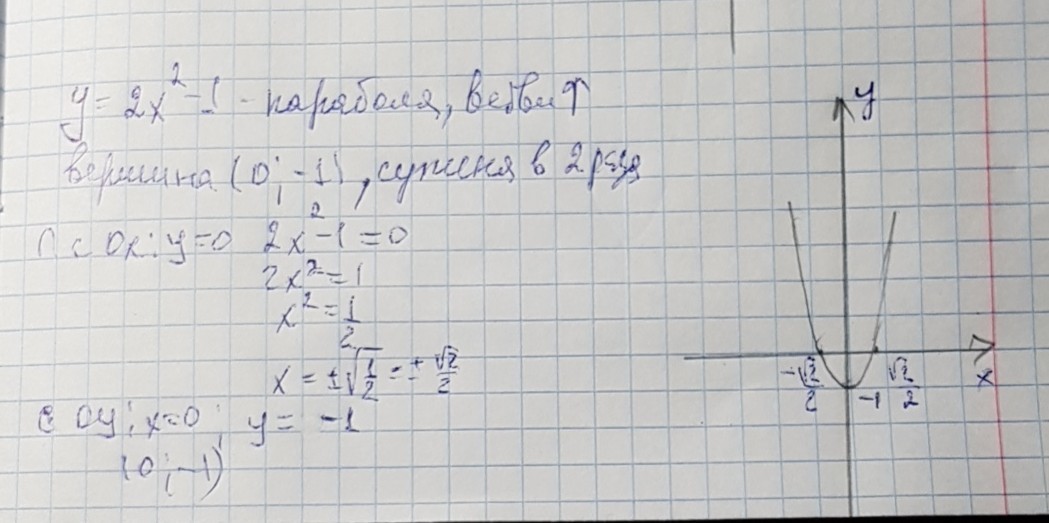 y = 2x² - 1 - парабола, ветви ↑
вершина (0; -1), сужена в 2 раза
∩ с Ox: y=0 2x² - 1 = 0
2x² = 1
x² = 1/2
x = ±√(1/2) = ± √2/2
с Oy: x=0; y = -1
(0; -1)
y
x
-√2/2
-1
√2/2